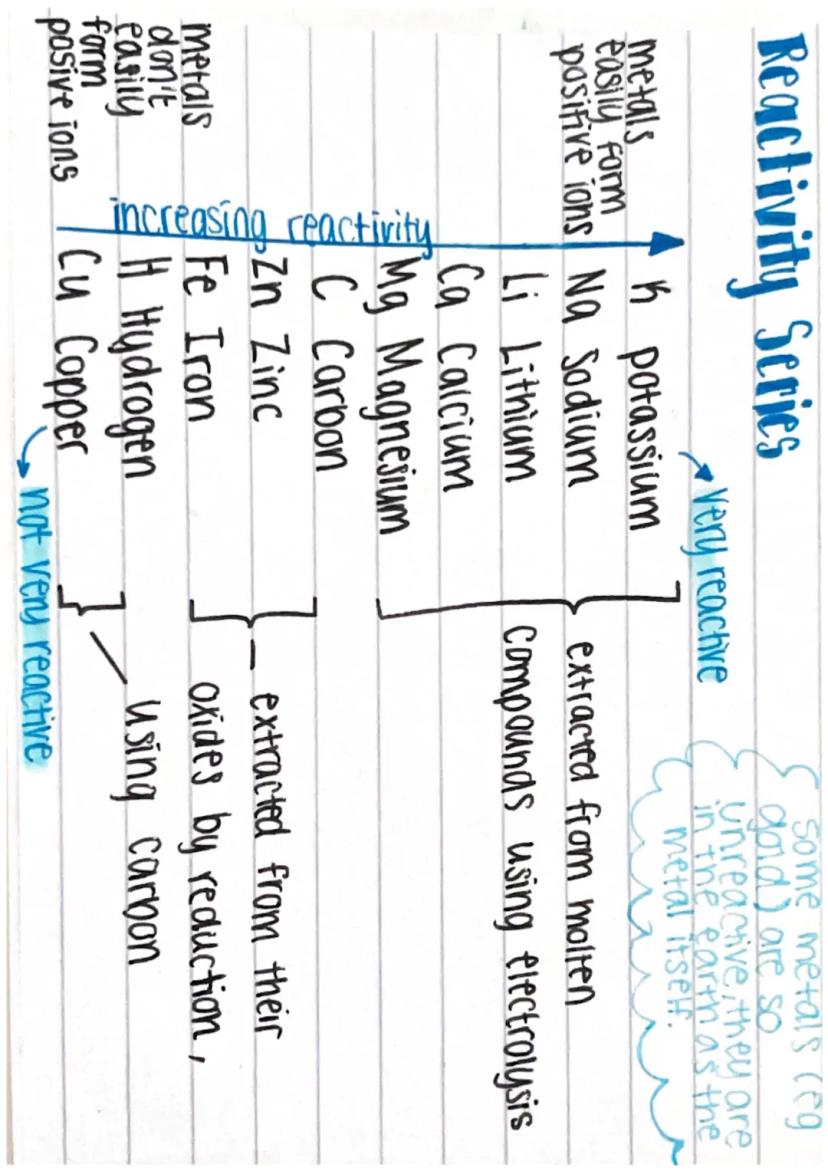 Reactivity Series
very reactive
some metals (eg
gold) are so
unreactive, they are
in the earth as the
metal itself.
metals
easily form
positive ions
increasing reactivity
K potassium
Na Sodium
Li Lithium
Ca Calcium
Mg Magnesium
C Carbon
Zn Zinc
Fe Iron
H Hydrogen
Cu Copper
extracted from molten
compounds using electrolysis
extracted from their
oxides by reduction,
using carbon
metals
don't
easily
form
posive ions
not very reactive